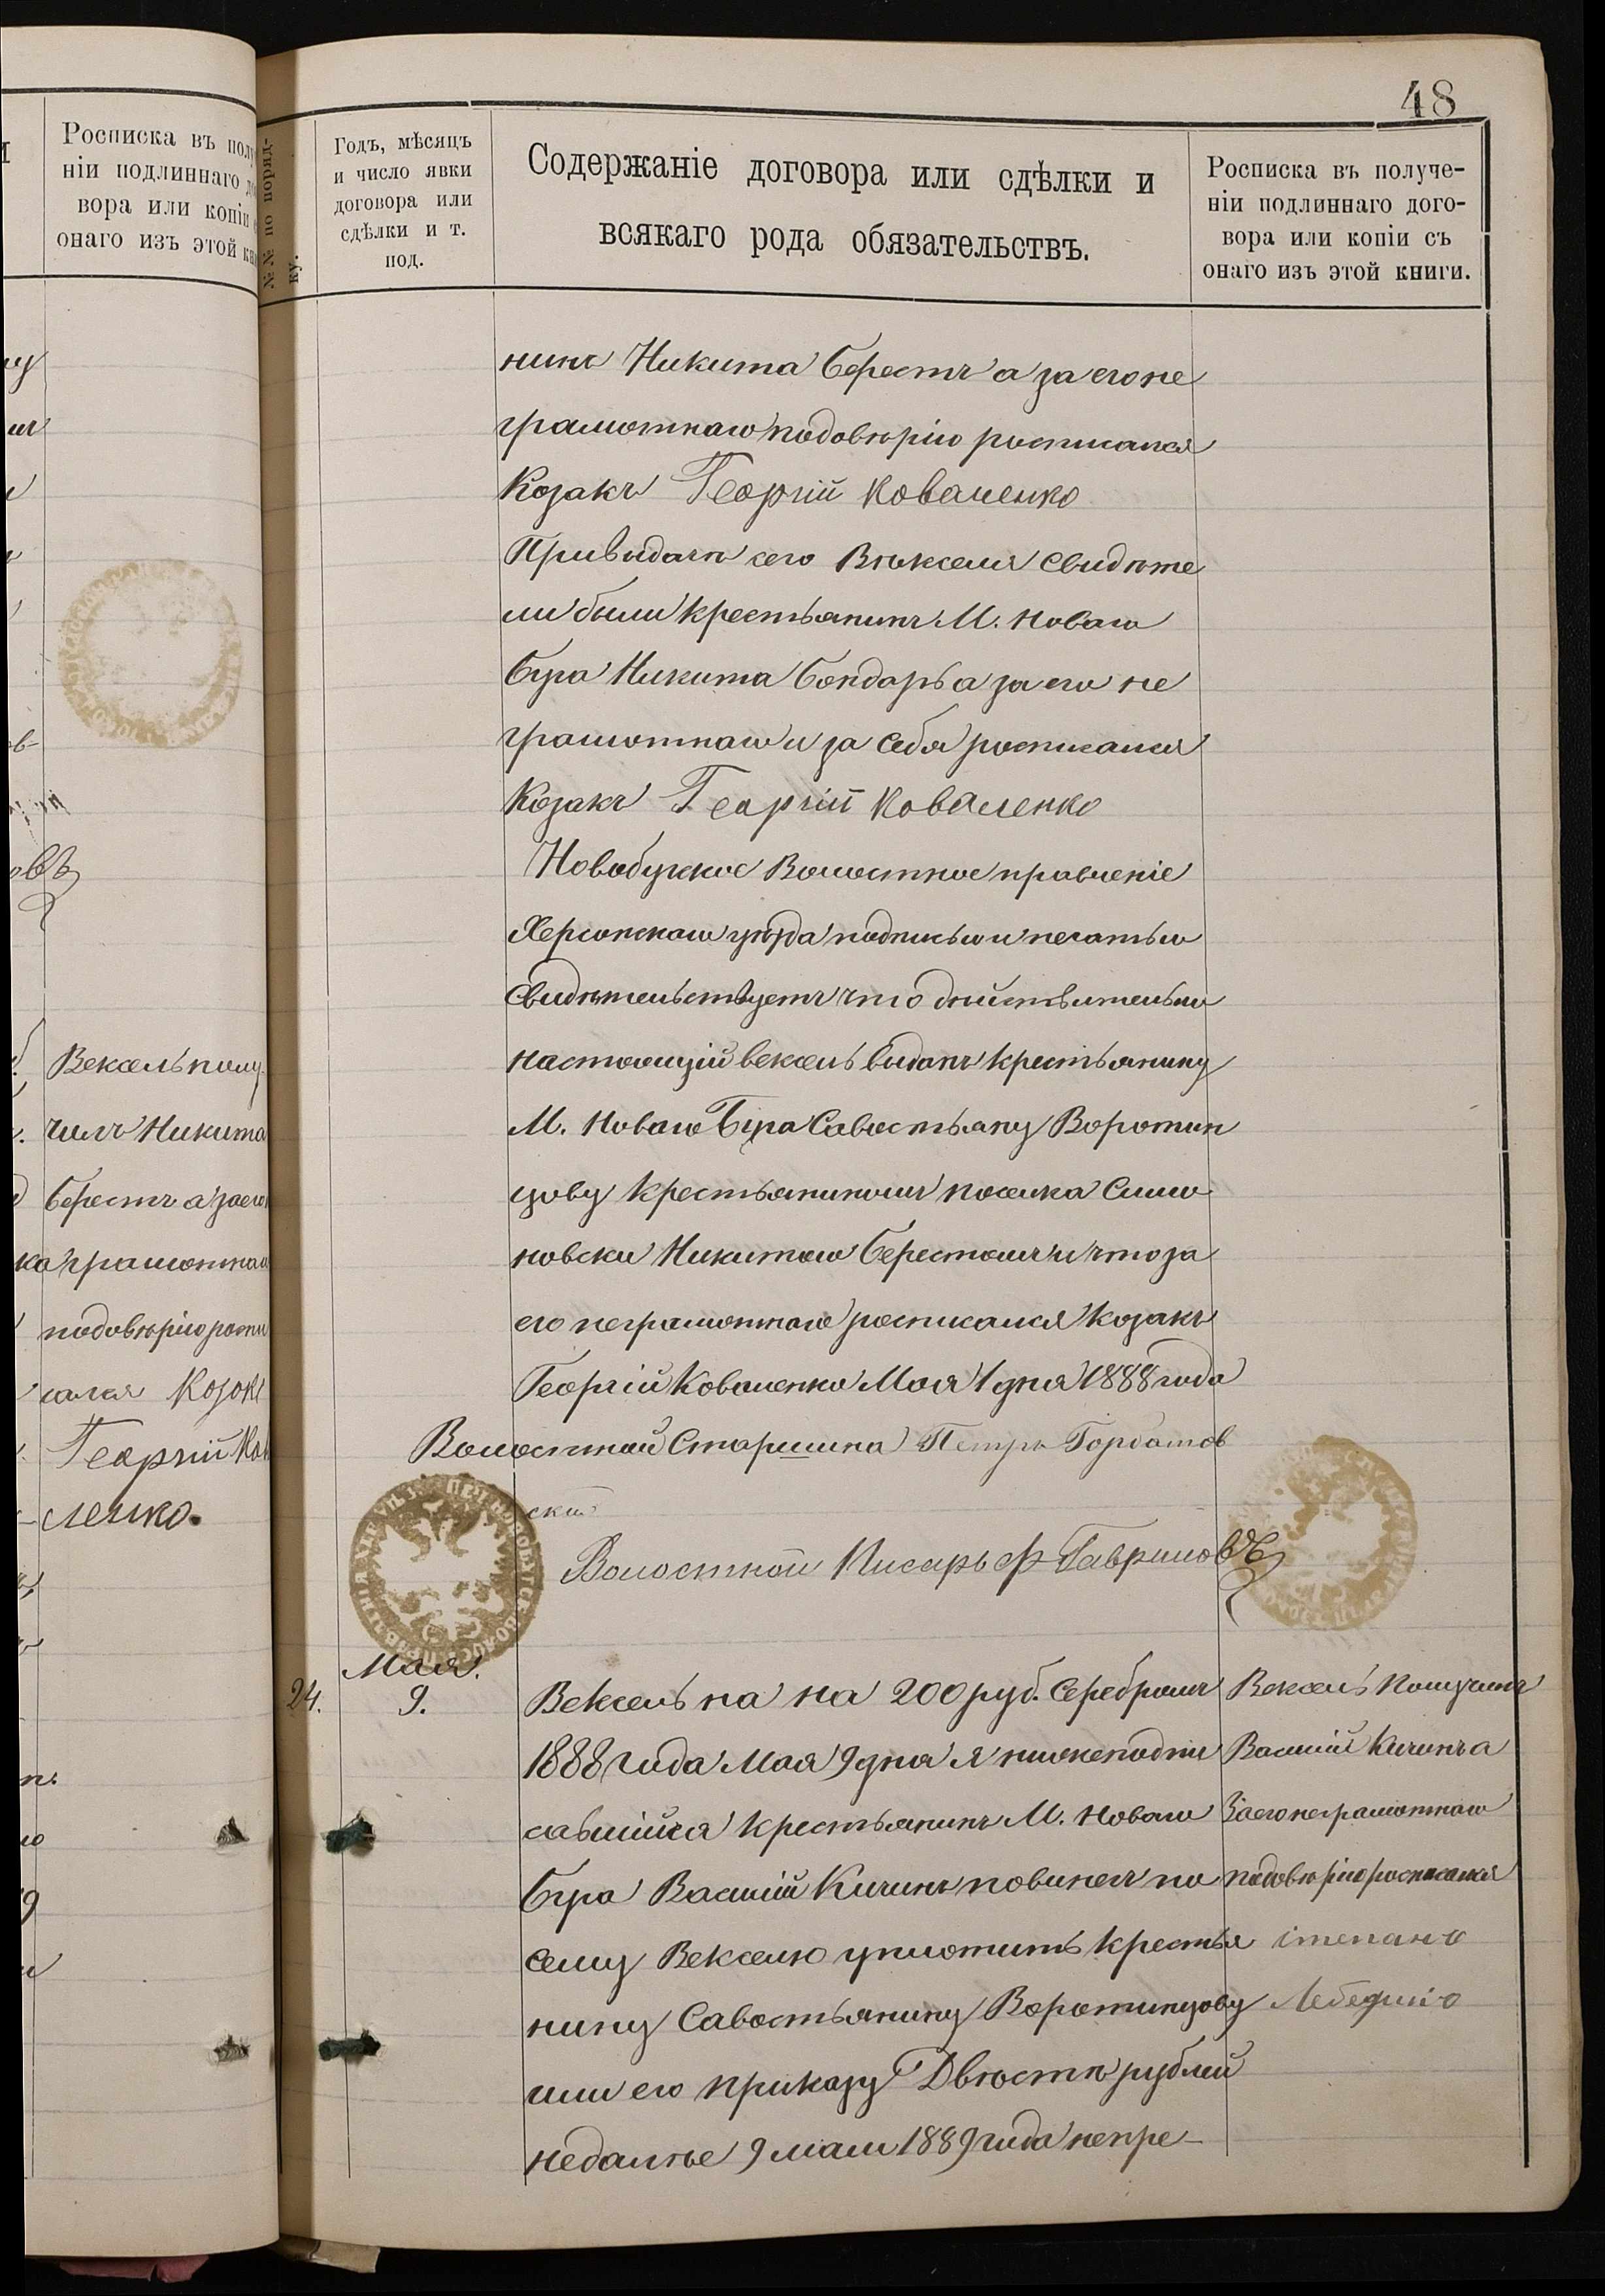 48
Росписка въ полу
ніи подлиннаго до
вора или копіи
онаго изъ этой кн
Вексель полу
чилъ Никита
Берестъ а заего
грамотнаго
подовѣрію роспи
сался Козакъ
Георгій Кова
ленко.
№№ по поряд-
ку.
Годъ, мѣсяцъ
и число явки
договора или
сдѣлки и т.
под.
Содержаніе договора или сдѣлки и
всякаго рода обязательствъ.
Росписка въ получе-
ніи подлиннаго дого-
вора или копіи съ
онаго изъ этой книги.
нинъ Никита Берестъ а за его не
грамотнаго подовѣрію росписался
Козакъ Георгій Коваленко
Привыдачѣ сего Вѣкселя Свидѣте
ли были крестьянинъ М. Новаго
Буга Никита Бондарь а за его не
грамотнаго и за себя росписался
Козакъ Георгій Коваленко
Новобугское Волостное правленіе
Херсонскаго уѣзда подписью и печатью
Свидѣтельствуетъ что дѣйствительно
настоящій вексель выданъ крестьянину
М. Новаго Буга Савостьяну Воротин
цову крестьяниномъ поселка Симо
новки Никитою Берестомъ и что за
его неграмотнаго росписался козакъ
Георгій Коваленко Мая 1 дня 1888 года
Волостной Старшина Петръ Горбатов
скій
Волостной Писарь Ф Гавриловъ
24.
Мая
9.
Вексель на на 200 руб. Серебромъ
1888 года Мая 9 дня я нижеподпи
савшійся крестьянинъ М. Новаго
Буга Василій Кичинъ повиненъ по
сему Векселю уплотить крестья
нину Савостьянину Воротинцову
или его приказу Двѣстѣ рублей
недалѣе 9 маи 1889 года непре-
Вексель Получилъ
Василій Кичинъ а
Заего неграмотнаго
подовѣрію росписался
степанъ